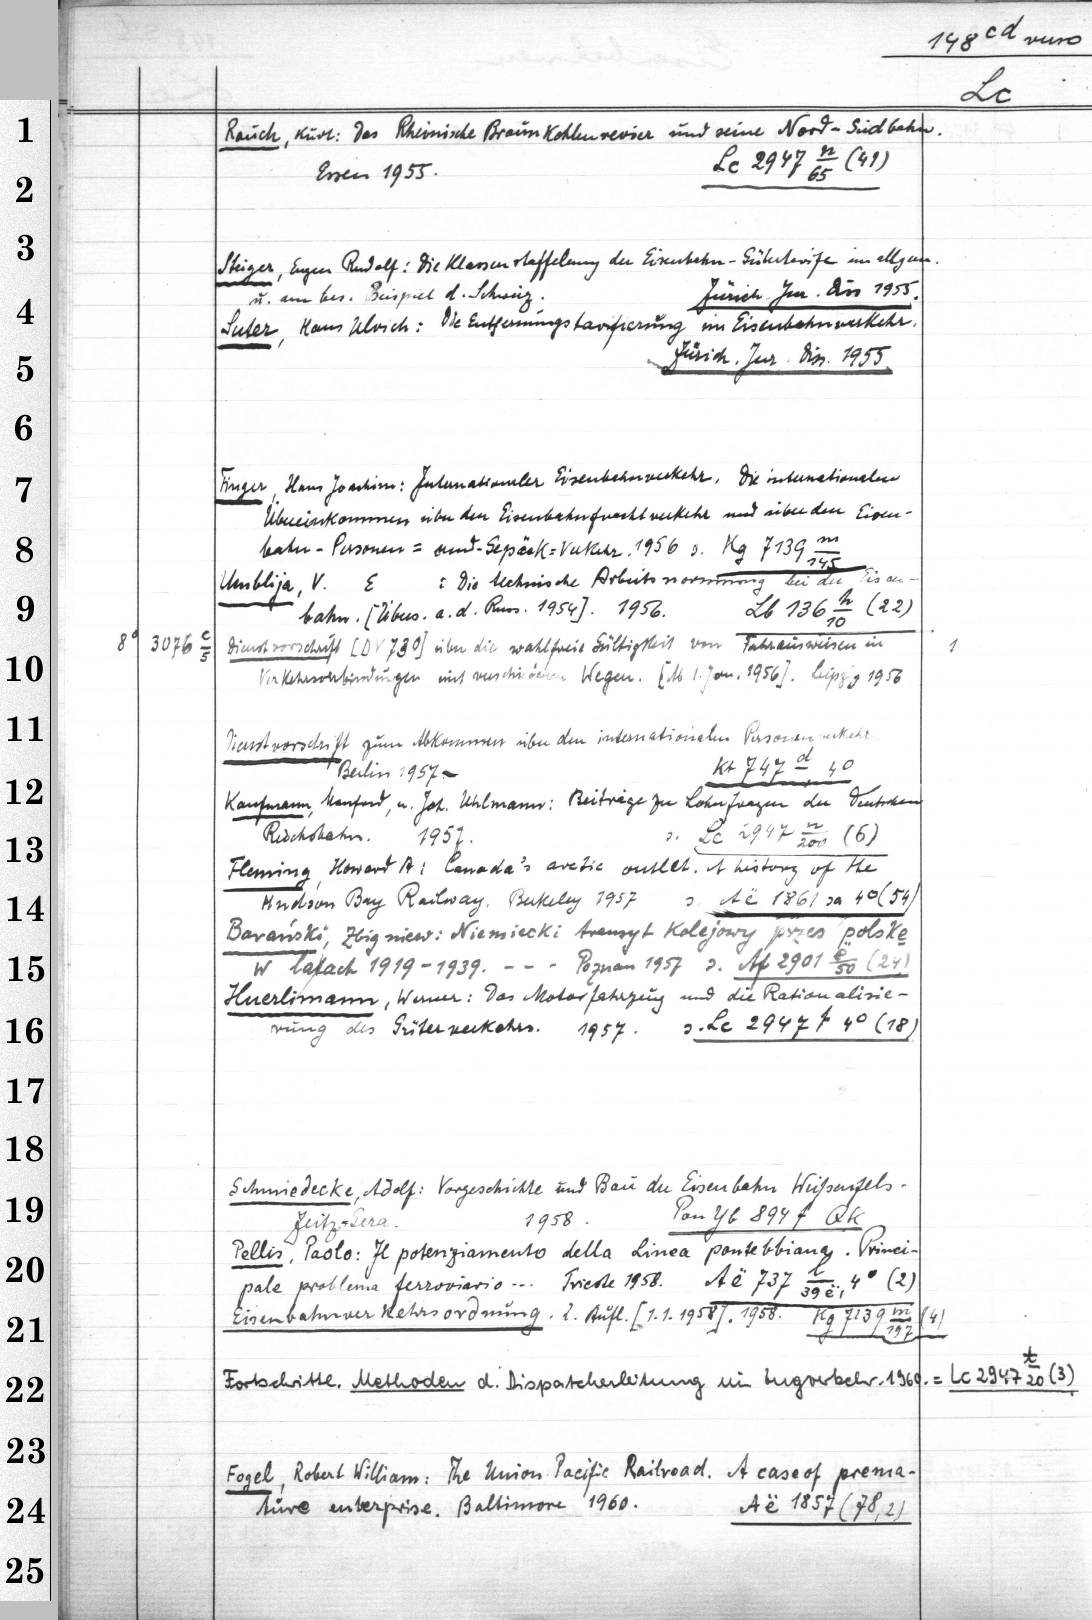 148 cd verso
Lc
1 Rauch, Kurt: Das Rheinische Braunkohlenrevier und seine Nord-Südbahn.
2 Essen 1955. Lc 2947 n/65 (41)
3 Steiger, Eugen Rudolf: Die Klassenstaffelung der Eisenbahn-Gütertarife im allgem.
u. am bes. Beispiel d. Schweiz. Zürich. Jur. Diss 1955.
4 Suter, Hans Ulrich: Die Entfernungstarifierung im Eisenbahnverkehr.
5 Zürich. Jur. Diss. 1955.
6
7 Finger, Hans Joachim: Internationaler Eisenbahnverkehr. Die internationalen
Übereinkommen über den Eisenbahnfrachtverkehr und über den Eisen-
8 bahn-Personen= und-Gepäck=Verkehr. 1956 s. Kg 7139 m/145
Umblija, V. E : Die technische Arbeitsnormung bei der Eisen-
9 bahn. [Übers. a. d. Russ. 1954]. 1956. Lb 136 h/10 (22)
8° 3076 c/5 Dienstvorschrift [DV 730] über die wahlfreie Gültigkeit von Fahrausweisen in 1
10 Verkehrsverbindungen mit verschiedenen Wegen. [Ab 1. Jan. 1956]. Leipzig 1956
11 Dienstvorschrift zum Abkommen über den internationalen Personenverkehr
Berlin 1957- Kt 747 d 4°
12 Kaufmann, Manfred, u. Joh. Uhlmann: Beiträge zu Lohnfragen der Deutschen
Reichsbahn. 1957. s. Lc 2947 n/200 (6)
13 Fleming, Howard A: Canada's arctic outlet. A history of the
14 Hudson Bay Railway. Berkeley 1957 s. Aë 1861 sa 4°(54)
Barański, Zbigniew: Niemiecki tranzyt kolejowy przes polskę
15 w latach 1919-1939. - - - Poznan 1957 s. Af 2901 ë/50 (24)
Huerlimann, Werner: Das Motorfahrzeug und die Rationalisie-
16 rung des Güterverkehrs. 1957. s. Lc 2947 f 4° (18)
17
18
Schmiedecke, Adolf: Vorgeschichte und Bau der Eisenbahn Weißenfels-
19 Zeitz-Gera. 1958. Pon Yb 894 f QK
Pellis, Paolo: Il potenziamento della Linea pontebbiana. Princi-
20 pale problema ferroviario --- Trieste 1958. Aë 737 l/39ë, 4° (2)
21 Eisenbahnverkehrsordnung. 2. Aufl. [1.1.1958]. 1958. Kg 7139 m/197 (4)
22 Fortschrittl. Methoden d. Dispatcherleitung im Zugverkehr. 1960. = Lc 2947 t/20 (3)
23 Fogel, Robert William: The Union Pacific Railroad. A case of prema-
24 ture enterprise. Baltimore 1960. Aë 1857 (78,2)
25